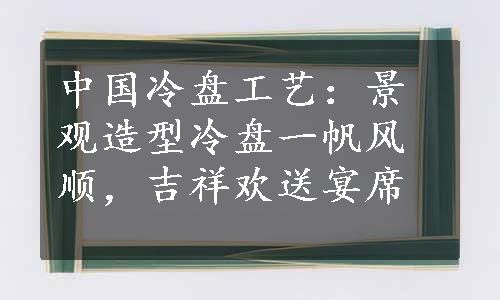 中国冷盘工艺：景
观造型冷盘一帆风
顺，吉祥欢送宴席